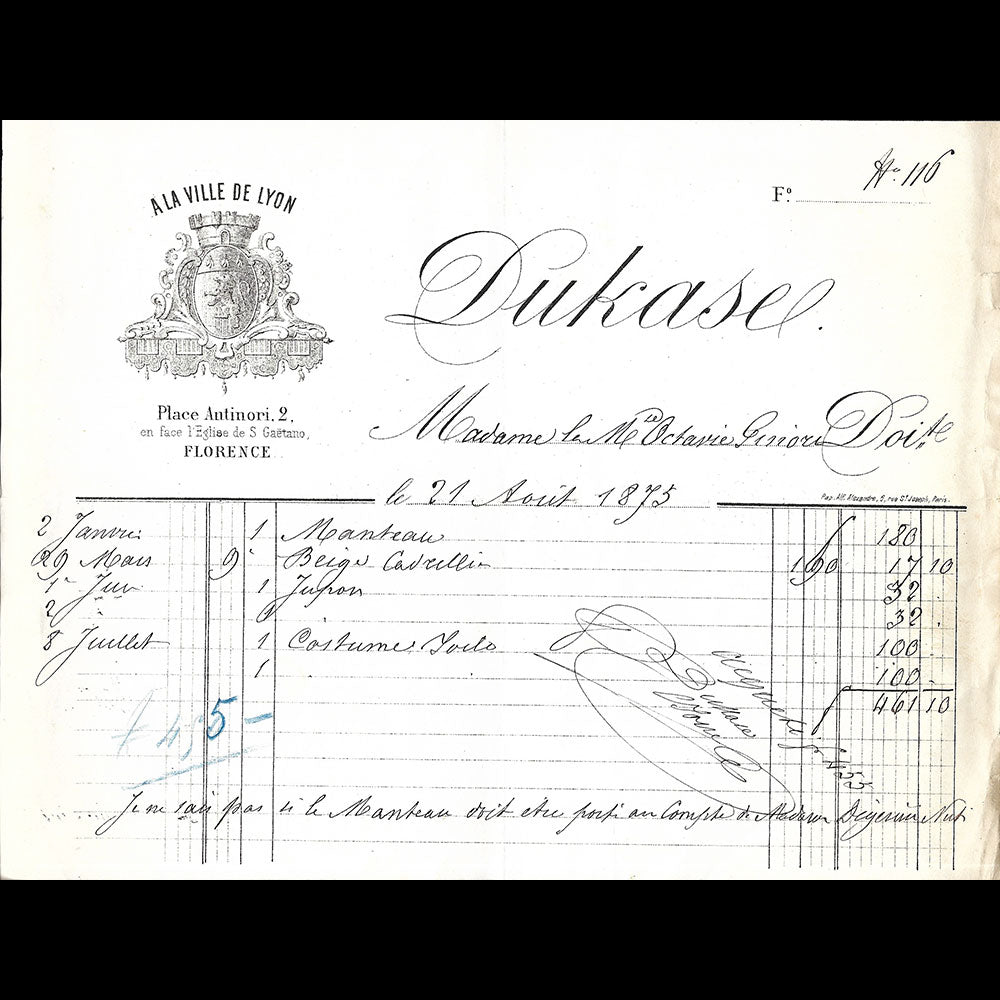 Nº 116
Fº
A LA VILLE DE LYON
Dukase.
Place Antinori. 2,
en face l'Eglise de S. Gaëtano,
FLORENCE
Madame la Mise Octavie Ginori Doit
le 21 Août 1875
Pap. Alf. Alexandre, 5, rue St Joseph, Paris.
2 Janvier 1 Manteau 180
29 Mars 9 Beige 1 90 17 10
1er Juin 1 Jupon 32 .
2 " 1 32 .
8 Juillet 1 Costume Toile 100 .
1 100 .
461 10
£ 455 -
Dukase
455
Je ne sais pas si le Manteau doit être porté au Compte de